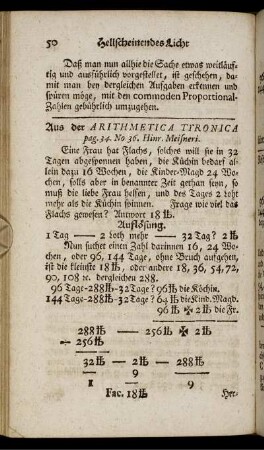 50 Hellscheinendes Licht
Daß man nun allhie die Sache etwas weitläuf-
tig und ausführlich vorgestellet, ist geschehen, da-
mit man bey dergleichen Aufgaben erkennen und
spüren möge, mit den commoden Proportional-
Zahlen gebührlich umzugehen.
Aus der ARITHMETICA TYRONICA
pag. 34. No 36. Hinr. Meisneri.
Eine Frau hat Flachs, solches will sie in 32
Tagen abgesponnen haben, die Küchin bedarf al-
lein dazu 16 Wochen, die Kinder-Magd 24 Wo-
chen, solls aber in benannter Zeit gethan seyn, so
muß die liebe Frau helffen, und des Tages 2 Loht
mehr als die Küchin spinnen. Frage wie viel das
Flachs gewesen? Antwort 18 ℔.
Auflösung.
1 Tag — 2 Loth mehr — 32 Tag? 2 ℔
Nun suchet einen Zahl darinnen 16, 24 Wo-
chen, oder 96, 144 Tage, ohne Bruch aufgehen,
ist die kleinste 18 ℔, oder andere 18, 36, 54, 72,
90, 108 ꝛc. dergleichen 288.
96 Tage-288℔-32 Tage? 96 ℔ die Köchin.
144 Tage-288℔-32 Tage? 64 ℔ die Kind. Magd.
96 ℔ ✠ 2 ℔ die Fr.
288℔ — 256℔ ✠ 2℔
÷ 256℔
32℔ — 2℔ — 288℔
— 9
1 — 9
Fac. 18 ℔
Her-